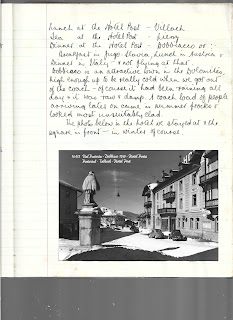 Lunch at the Hotel Post - Villach
Tea at the Hotel Post - Lienz
Dinner at the Hotel Post - Dobbiaco or:-
Breakfast in Jugo Slavia, Lunch in Austria &
Dinner in Italy - & not flying at that.
Dobbiaco is an attractive town in the Dolomites,
high enough up to be really cold when we got out
of the coach - of course it had been raining all
day & it was raw & damp. A coach load of people
arriving later on came in summer frocks &
looked most unsuitably clad.
The photo below is the hotel we stayed at & the
square in front - in winter of course!
Val Pusteria - Dobbiaco
Pustertal - Toblach - Hotel Post